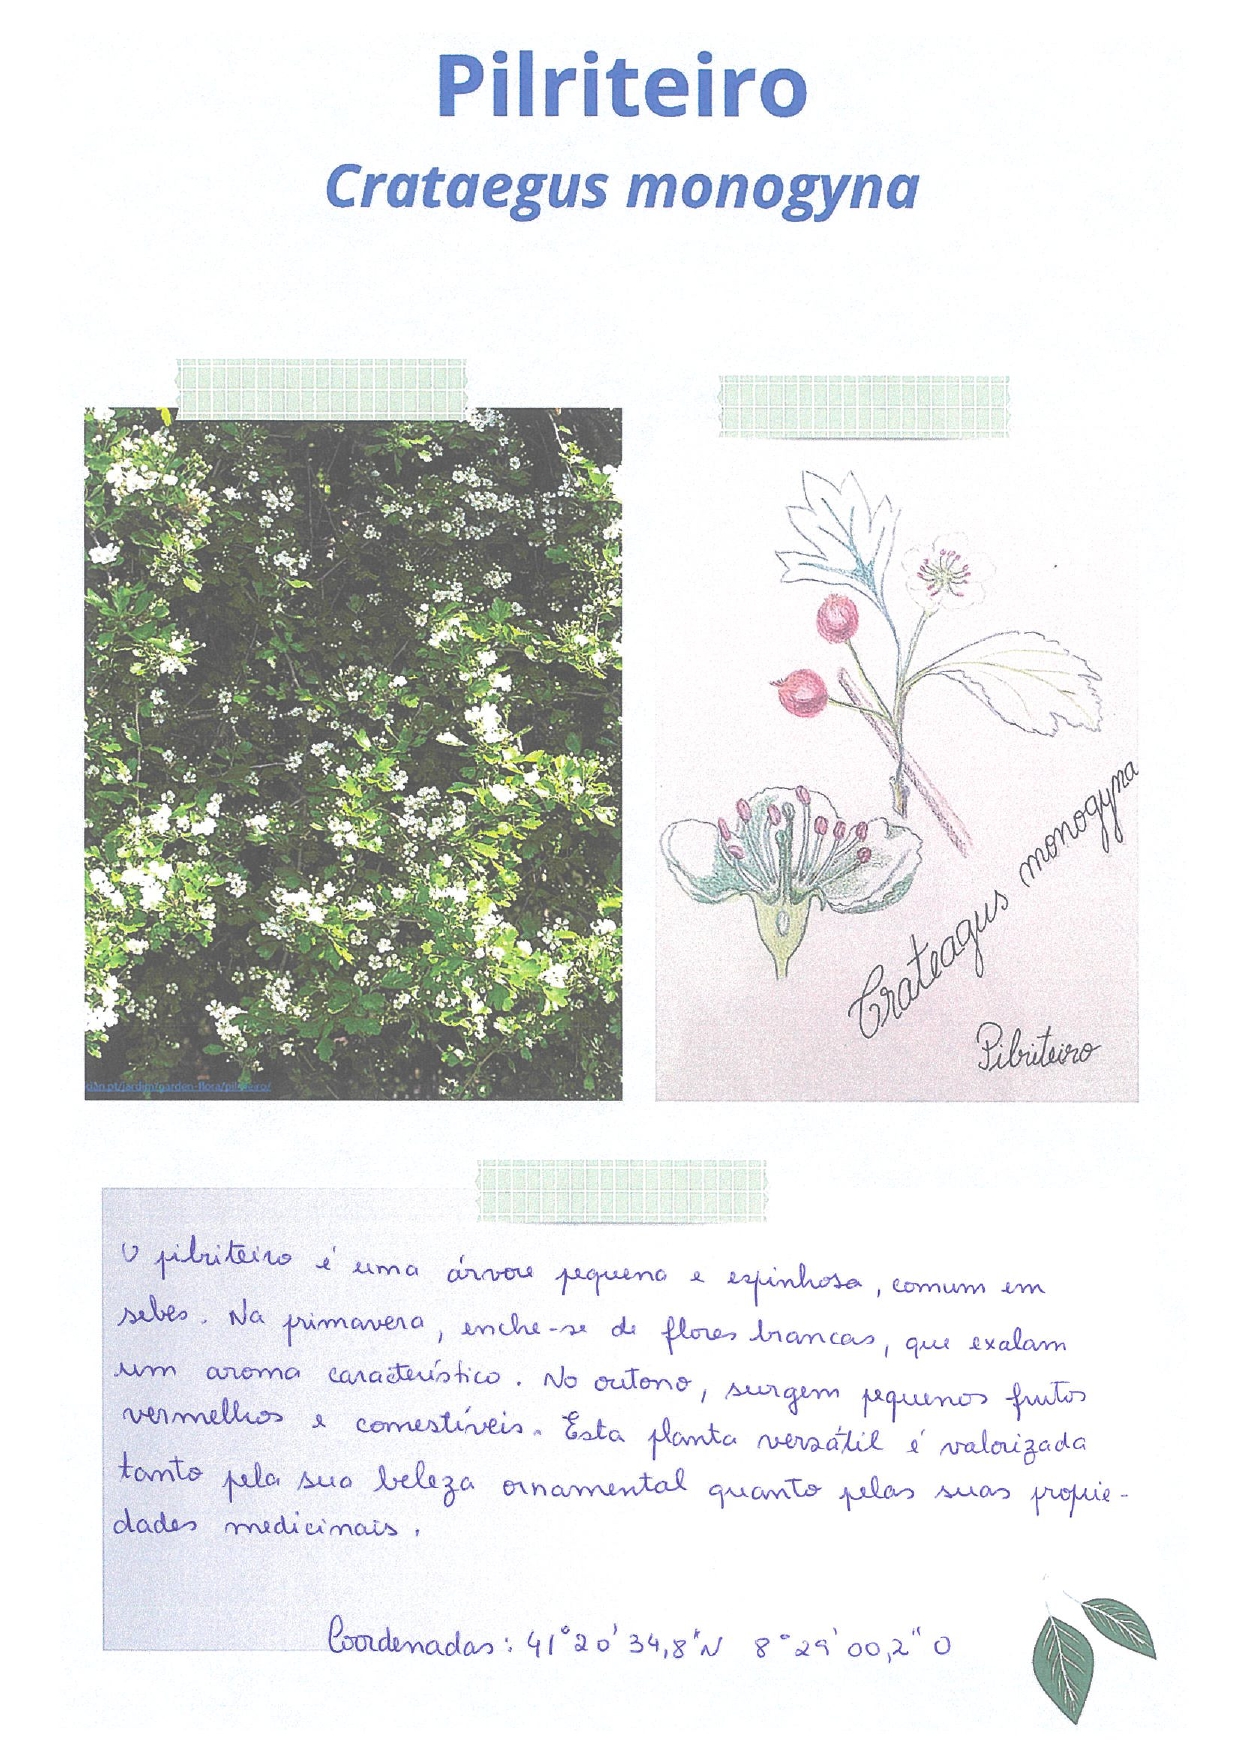 Pilriteiro
Crataegus monogyna
dan.pt/jardim/garden-flora/pilriteiro/
Crateagus monogyna
Pilriteiro
O pilriteiro é uma árvore pequena e espinhosa, comum em
sebes. Na primavera, enche-se de flores brancas, que exalam
um aroma característico. No outono, surgem pequenos frutos
vermelhos e comestíveis. Esta planta versátil é valorizada
tanto pela sua beleza ornamental quanto pelas suas proprie-
dades medicinais.
Coordenadas: 41°20'34,8"N 8°29'00,2"O